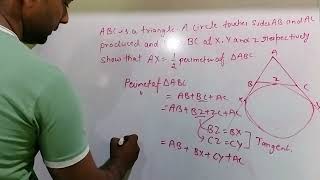 ABC is a triangle. A circle touches sides AB and AC
produced and BC at X, Y and Z respectively
show that AX = 1/2 perimeter of ΔABC
A
B
Z
C
X
Y
Perimeter of ΔABC
= AB+BC+AC
= AB+BZ+ZC+AC
BZ = BX
CZ = CY
Tangent.
= AB + BX + CY + AC